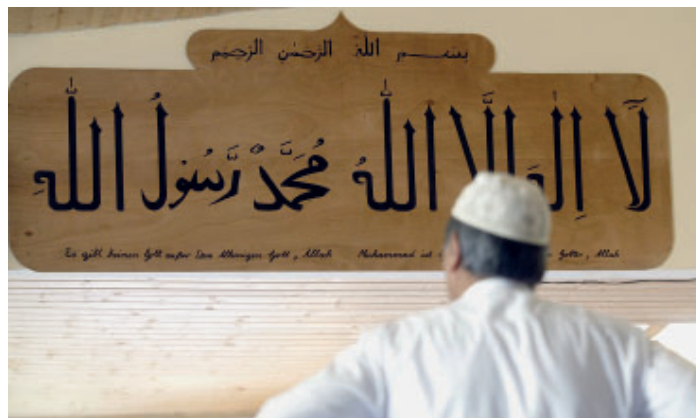 بسم الله الرحمن الرحيم
لَا إِلٰهَ إِلَّا اللّٰهُ مُحَمَّدٌ رَّسُولُ اللّٰهِ
Es gibt keinen Gott außer Gott, Allah Muhammad ist Gottes, Allah